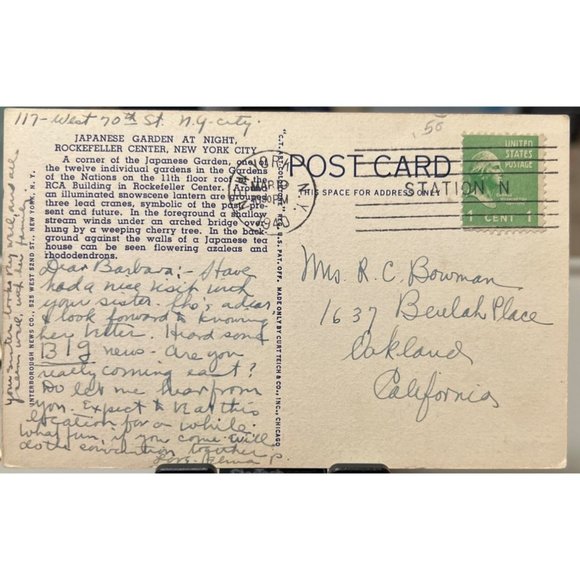 117 - West 70th St. N.Y. City.
JAPANESE GARDEN AT NIGHT,
ROCKEFELLER CENTER, NEW YORK CITY
A corner of the Japanese Garden, one of
the twelve individual gardens in the Gardens
of the Nations on the 11th floor roof of the
RCA Building in Rockefeller Center. Around
an illuminated snowscene lantern are grouped
three lead cranes, symbols of the past, pre-
sent and future. In the foreground a shallow
stream winds under an arched bridge over-
hung by a weeping cherry tree. In the back-
ground against the walls of a Japanese tea
house can be seen flowering azaleas and
rhododendrons.
Dear Barbara; - Have
had a nice visit with
your sister. She's a dear
& look forward to knowing
her better. Heard some
BIG news - Are you
really coming east?
Do let me hear from
you. Expect to be at this
location for a while.
What fun, if you come will
do the convention together
Love
your sister looks very well, and all
seem well, with her family
UNTERBOROUGH NEWS CO., 525 WEST 52ND ST., NEW YORK, N. Y.
MADE ONLY BY CURT TEICH & CO., INC., CHICAGO
POST CARD
THIS SPACE FOR ADDRESS ONLY
.50
N.Y.
PM
1940
STATION N
UNITED
STATES
POSTAGE
1 CENT 1
Mrs. R. C. Bowman
1637 Beulah Place
Oakland
California